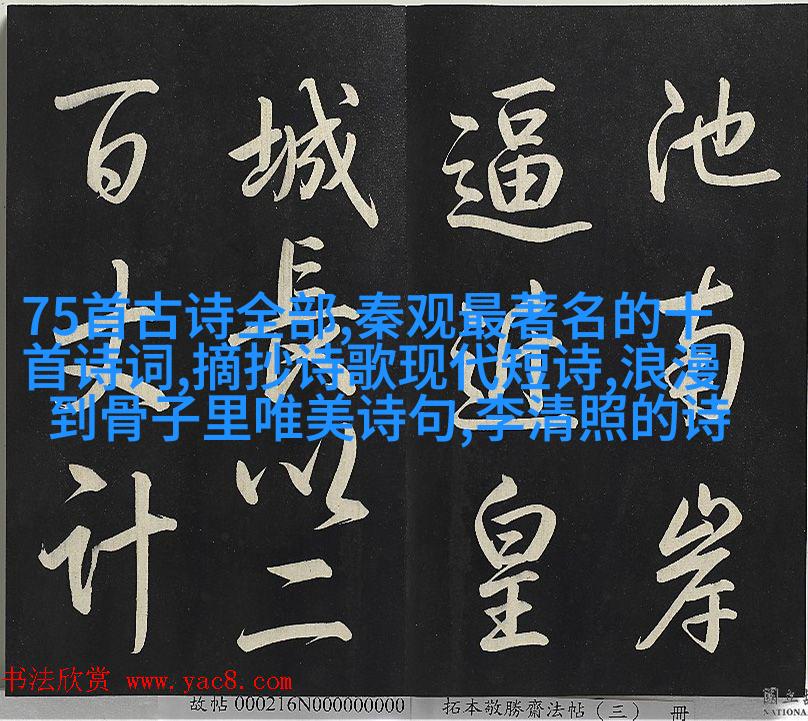 池南岸
逼皇
城長以二
百丈計
75首古诗全部,秦观最著名的十
首诗词,摘抄诗歌现代短诗,浪漫
到骨子里唯美诗句,李清照的诗
书法欣赏 www.yac8.com
故帖 000216N000000000 拓本敬勝齋法帖（三） 冊
國立
NATIONA